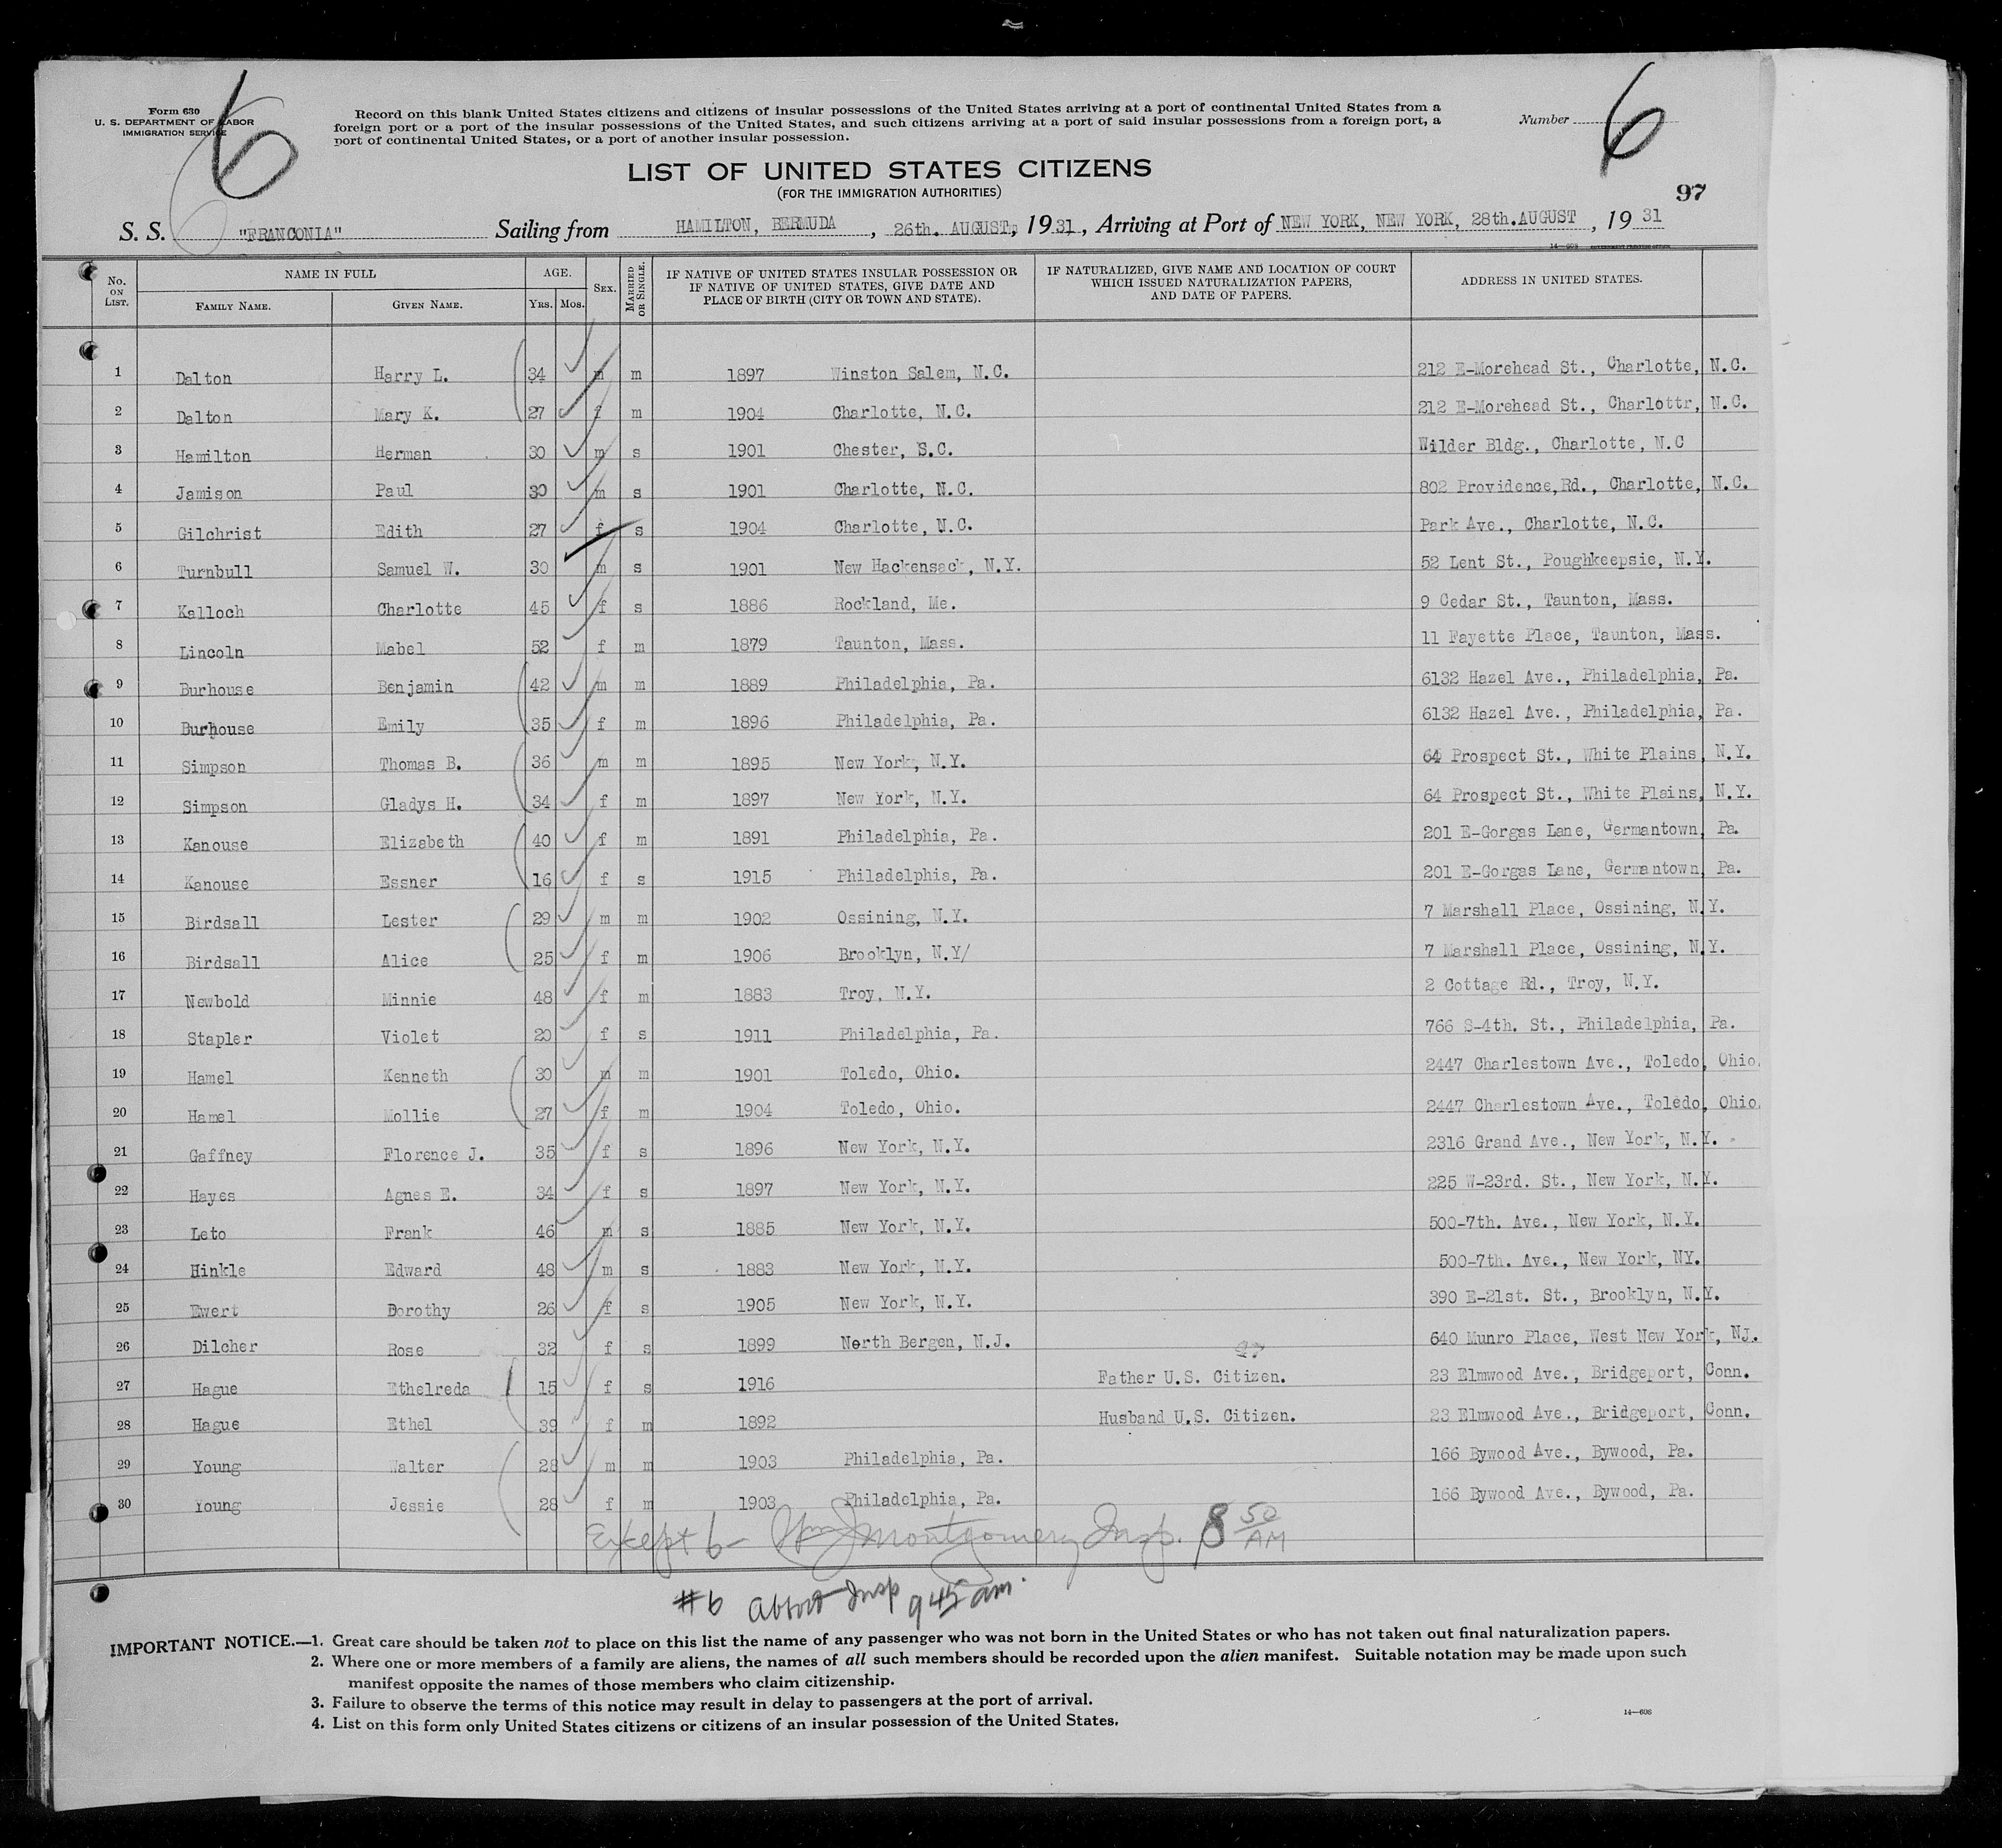 Form 630
U. S. DEPARTMENT OF LABOR
IMMIGRATION SERVICE
6
Record on this blank United States citizens and citizens of insular possessions of the United States arriving at a port of continental United States from a
foreign port or a port of the insular possessions of the United States, and such citizens arriving at a port of said insular possessions from a foreign port, a
port of continental United States, or a port of another insular possession.
Number 6
LIST OF UNITED STATES CITIZENS
(FOR THE IMMIGRATION AUTHORITIES)
97
S. S. "FRANCONIA" Sailing from HAMILTON, BERMUDA, 26th. AUGUST, 1931, Arriving at Port of NEW YORK, NEW YORK, 28th.AUGUST, 1931
No. ON LIST. NAME IN FULL AGE. SEX. MARRIED OR SINGLE. IF NATIVE OF UNITED STATES INSULAR POSSESSION OR IF NATIVE OF UNITED STATES, GIVE DATE AND PLACE OF BIRTH (CITY OR TOWN AND STATE). IF NATURALIZED, GIVE NAME AND LOCATION OF COURT WHICH ISSUED NATURALIZATION PAPERS, AND DATE OF PAPERS. ADDRESS IN UNITED STATES.
FAMILY NAME. GIVEN NAME. YRS. MOS.
1 Dalton Harry L. 34 m m 1897 Winston Salem, N.C. 212 E-Morehead St., Charlotte, N.C.
2 Dalton Mary K. 27 f m 1904 Charlotte, N.C. 212 E-Morehead St., Charlottr, N.C.
3 Hamilton Herman 30 m s 1901 Chester, S.C. Wilder Bldg., Charlotte, N.C
4 Jamison Paul 30 m s 1901 Charlotte, N.C. 802 Providence,Rd., Charlotte, N.C.
5 Gilchrist Edith 27 f s 1904 Charlotte, N.C. Park Ave., Charlotte, N.C.
6 Turnbull Samuel W. 30 m s 1901 New Hackensack, N.Y. 52 Lent St., Poughkeepsie, N.Y.
7 Kalloch Charlotte 45 f s 1886 Rockland, Me. 9 Cedar St., Taunton, Mass.
8 Lincoln Mabel 52 f m 1879 Taunton, Mass. 11 Fayette Place, Taunton, Mass.
9 Burhouse Benjamin 42 m m 1889 Philadelphia, Pa. 6132 Hazel Ave., Philadelphia, Pa.
10 Burhouse Emily 35 f m 1896 Philadelphia, Pa. 6132 Hazel Ave., Philadelphia, Pa.
11 Simpson Thomas B. 36 m m 1895 New York, N.Y. 64 Prospect St., White Plains, N.Y.
12 Simpson Gladys H. 34 f m 1897 New York, N.Y. 64 Prospect St., White Plains, N.Y.
13 Kanouse Elizabeth 40 f m 1891 Philadelphia, Pa. 201 E-Gorgas Lane, Germantown, Pa.
14 Kanouse Essner 16 f s 1915 Philadelphia, Pa. 201 E-Gorgas Lane, Germantown, Pa.
15 Birdsall Lester 29 m m 1902 Ossining, N.Y. 7 Marshall Place, Ossining, N.Y.
16 Birdsall Alice 25 f m 1906 Brooklyn, N.Y/ 7 Marshall Place, Ossining, N.Y.
17 Newbold Minnie 48 f m 1883 Troy, N.Y. 2 Cottage Rd., Troy, N.Y.
18 Stapler Violet 20 f s 1911 Philadelphia, Pa. 766 S-4th. St., Philadelphia, Pa.
19 Hamel Kenneth 30 m m 1901 Toledo, Ohio. 2447 Charlestown Ave., Toledo, Ohio.
20 Hamel Mollie 27 f m 1904 Toledo, Ohio. 2447 Charlestown Ave., Toledo, Ohio.
21 Gaffney Florence J. 35 f s 1896 New York, N.Y. 2316 Grand Ave., New York, N.Y.
22 Hayes Agnes E. 34 f s 1897 New York, N.Y. 225 W-23rd. St., New York, N.Y.
23 Leto Frank 46 m s 1885 New York, N.Y. 500-7th. Ave., New York, N.Y.
24 Hinkle Edward 48 m s 1883 New York, N.Y. 500-7th. Ave., New York, NY.
25 Ewert Dorothy 26 f s 1905 New York, N.Y. 390 E-21st. St., Brooklyn, N.Y.
26 Dilcher Rose 32 f s 1899 North Bergen, N.J. 640 Munro Place, West New York, NJ.
27 Hague Ethelreda 15 f s 1916 Father U.S. Citizen. 23 Elmwood Ave., Bridgeport, Conn.
28 Hague Ethel 39 f m 1892 Husband U.S. Citizen. 23 Elmwood Ave., Bridgeport, Conn.
29 Young Walter 28 m m 1903 Philadelphia, Pa. 166 Bywood Ave., Bywood, Pa.
30 Young Jessie 28 f m 1903 Philadelphia, Pa. 166 Bywood Ave., Bywood, Pa.
Except 6 - Wm J Montgomery Insp. 8 50 AM
#6 Abbott Insp 9 45 am.
IMPORTANT NOTICE.—1. Great care should be taken not to place on this list the name of any passenger who was not born in the United States or who has not taken out final naturalization papers.
2. Where one or more members of a family are aliens, the names of all such members should be recorded upon the alien manifest. Suitable notation may be made upon such
manifest opposite the names of those members who claim citizenship.
3. Failure to observe the terms of this notice may result in delay to passengers at the port of arrival.
4. List on this form only United States citizens or citizens of an insular possession of the United States.
14—606